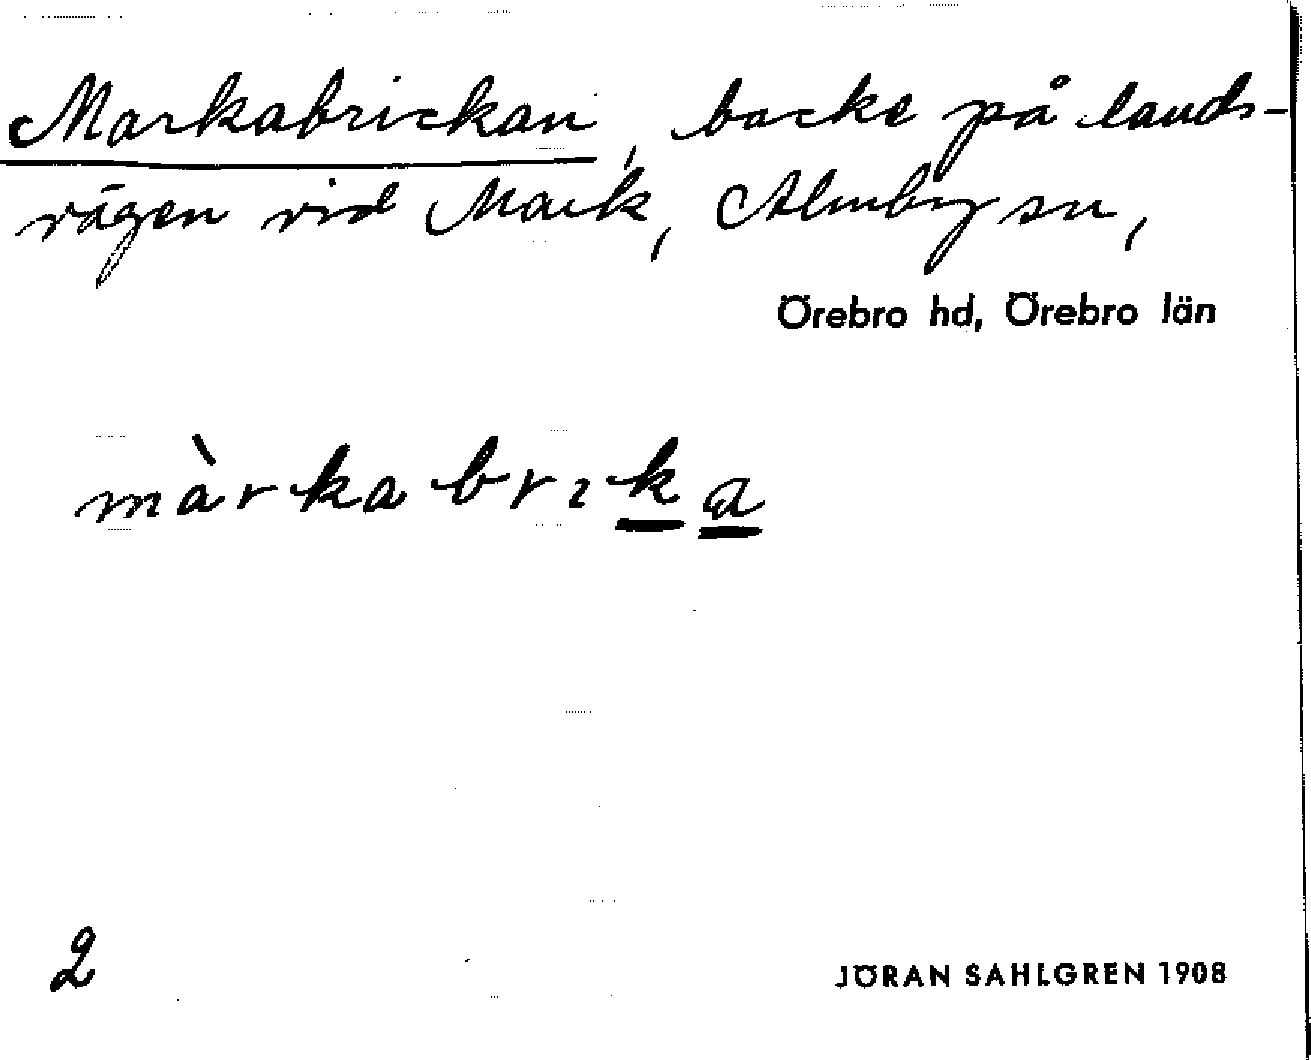 Markabrickan, backe på lands-
vägen vid Mark, Almby sn,
Örebro hd, Örebro län
màrkabrıka
2
JÖRAN SAHLGREN 1908